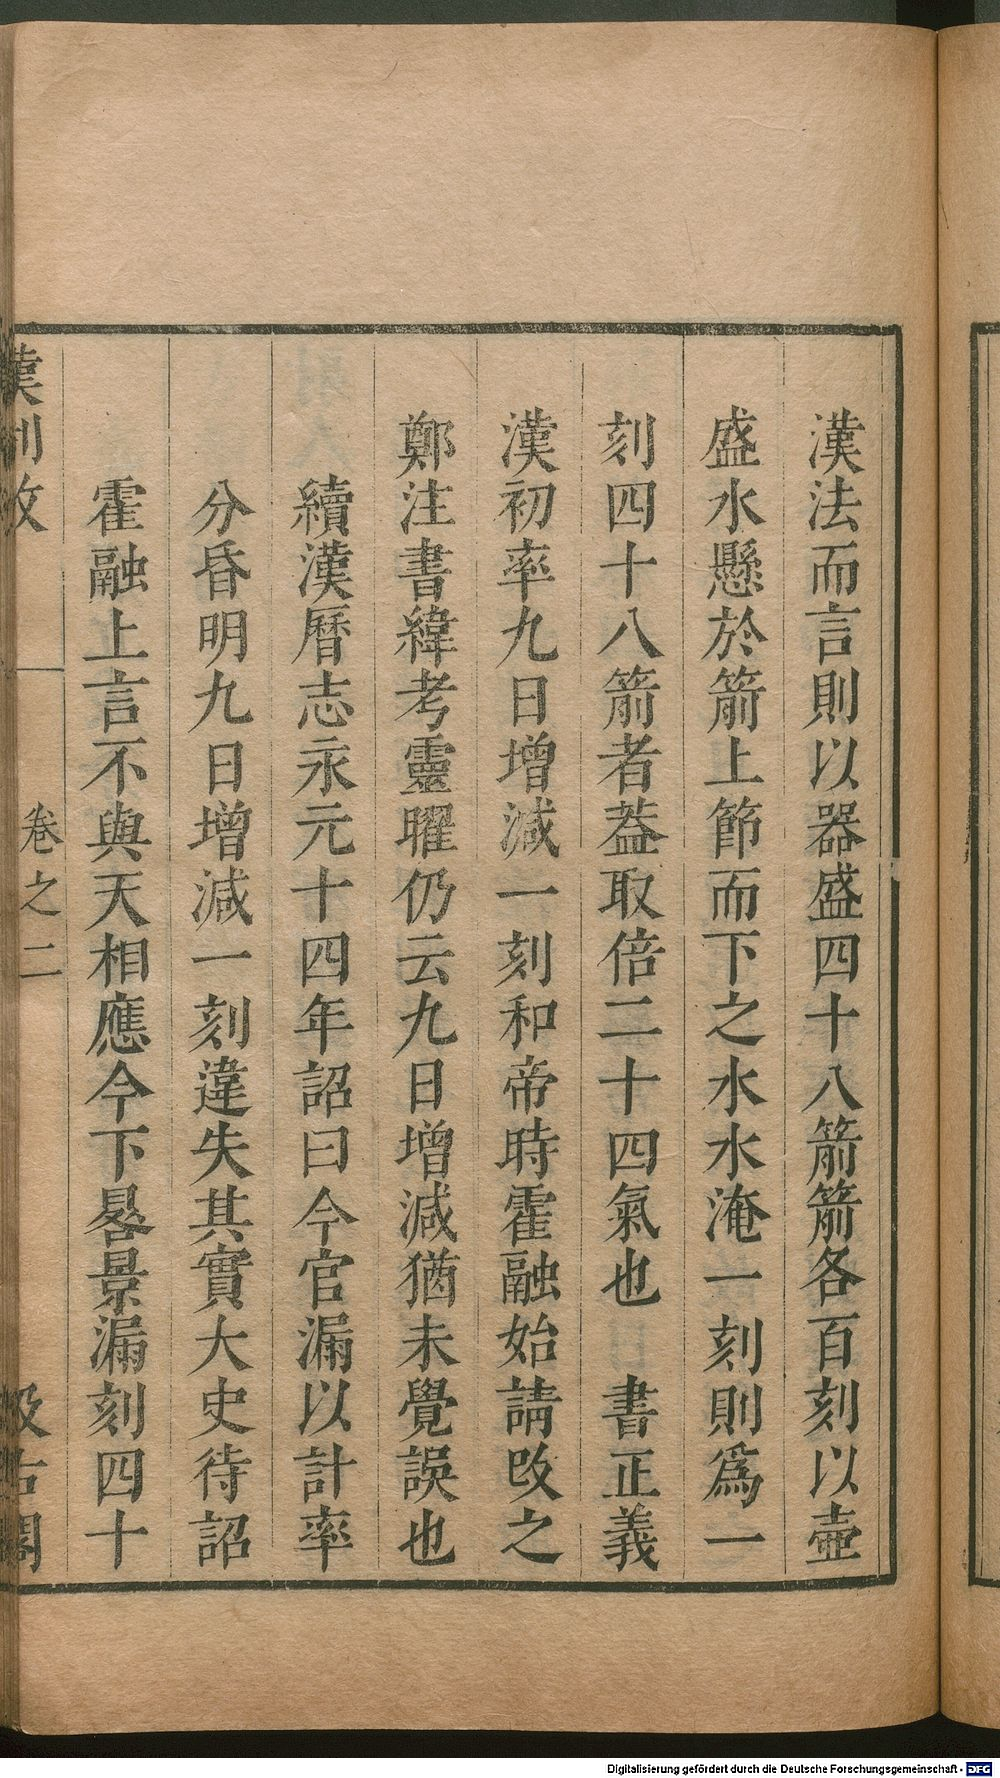 漢法而言則以器盛四十八箭箭各百刻以壺
盛水懸於箭上節而下之水水淹一刻則爲一
刻四十八箭者葢取倍二十四氣也　書正義
漢初率九日增減一刻和帝時霍融始請改之
鄭注書緯考靈曜仍云九日增減猶未覺誤也
續漢曆志永元十四年詔曰今官漏以計率
分昏明九日增減一刻違失其實大史待詔
霍融上言不與天相應今下晷景漏刻四十
漢制攷　卷之二　汲古閣
Digitalisierung gefördert durch die Deutsche Forschungsgemeinschaft - DFG